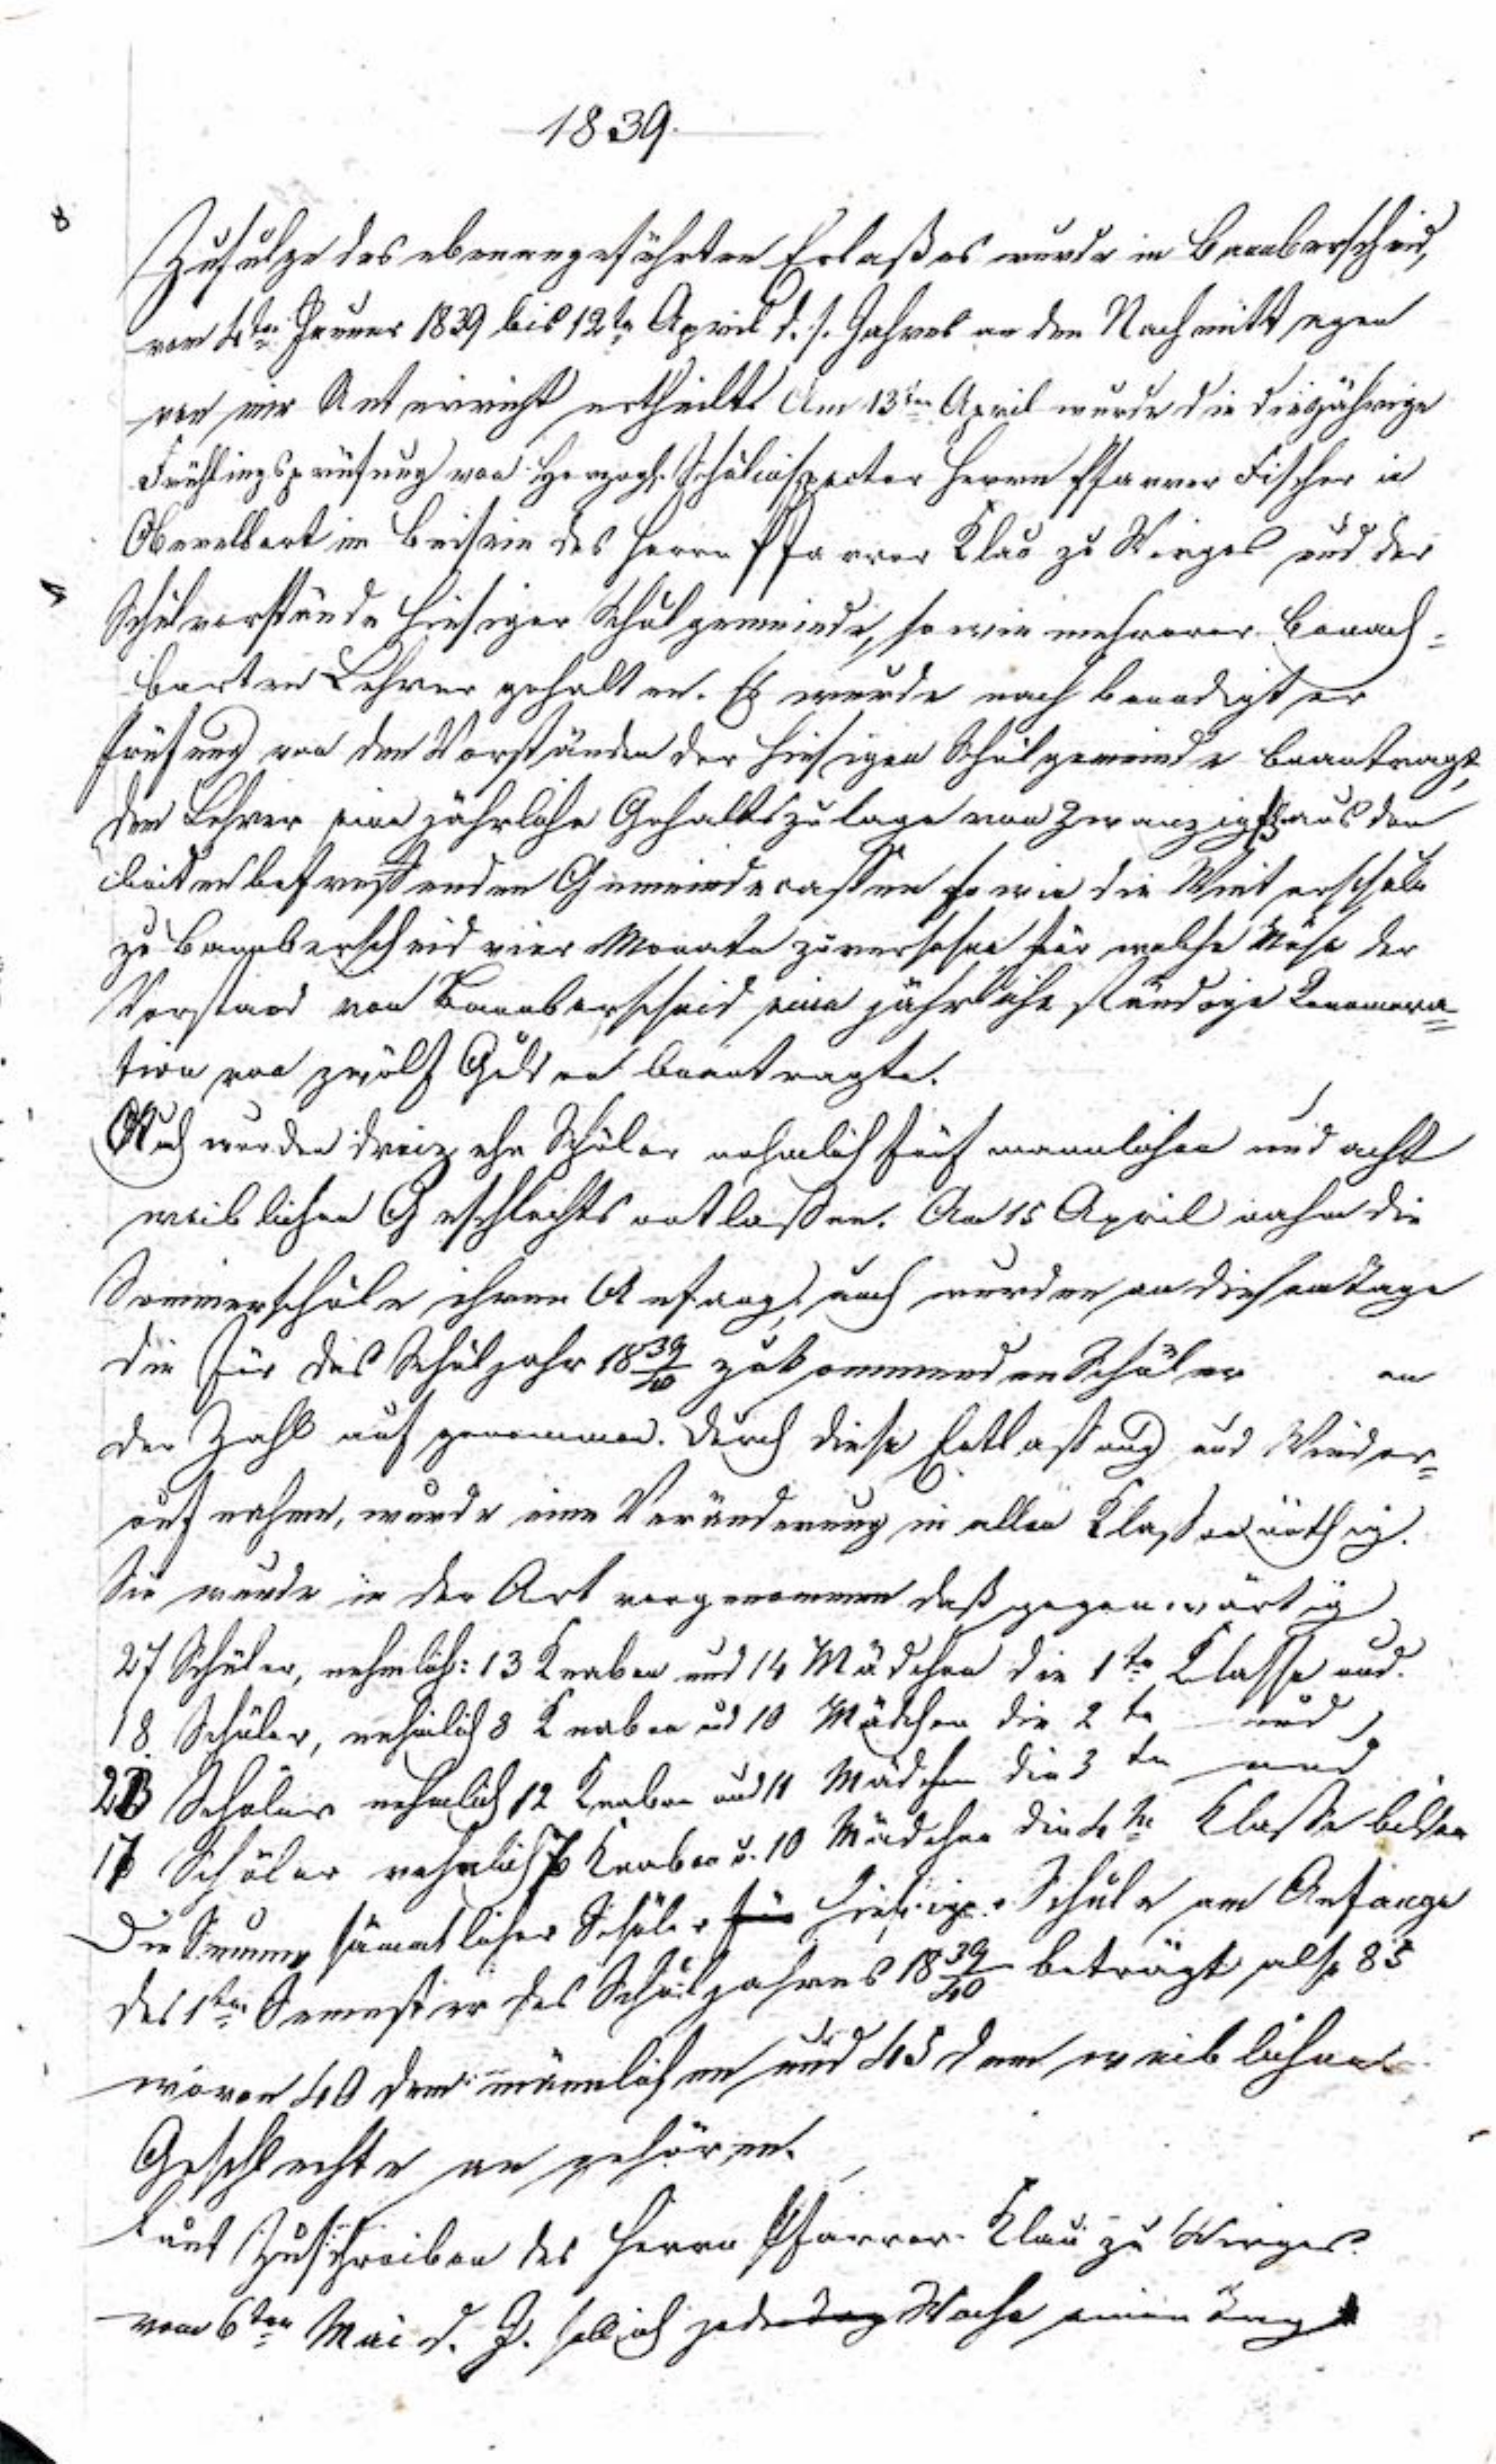 1839.
Zufolge des obenangeführten Erlaßes wurde in Bannberscheid,
vom 4ten Januar 1839 bis 12te April d. s. Jahres an den Nachmittagen
von mir Unterricht ertheilt. Am 13ten April wurde die diesjährige
Frühlingsprüfung von Herzogl. Schulinspector Herrn Pfarrer Fischer in
Oberelbert im Beisein des Herrn Pfarrer Klau zu Wirges und der
Schulvorstände hiesiger Schulgemeinde, so wie mehrerer benach-
barten Lehrer gehalten. Es wurde nach beendigter
Prüfung von den Vorständen der hiesigen Schulgemeinde beantragt,
dem Lehrer eine jährliche Gehaltszulage von zwanzig fl aus den
beiden betreffenden Gemeindecassen so wie die Winterschule
zu Bannberscheid vier Monate zu versehen für welche Mühe der
Vorstand von Bannberscheid eine jährliche ständige Renumera-
tion von zwölf Gulden beantragte.
Auch wurden dreizehn Schüler nehmlich fünf männlichen und acht
weiblichen Geschlechts entlassen. Am 15 April nahm die
Sommerschule ihren Anfang, auch wurden an diesem Tage
die für das Schuljahr 1839/40 zukommenden Schüler an
der Zahl aufgenommen. Durch diese Entlassung und Wieder-
aufnahme, wurde eine Veränderung in allen Klassen nöthig.
Sie wurde in der Art vorgenommen daß gegenwärtig
27 Schüler, nehmlich: 13 Knaben und 14 Mädchen die 1te Klasse und.
18 Schüler, nehmlich 8 Knaben und 10 Mädchen die 2te und
23 Schüler nehmlich 12 Knaben und 11 Mädchen die 3te und
17 Schüler nehmlich 7 Knaben u. 10 Mädchen die 4te Klasse bilden
Die Summe sämmtlicher Schüler hiesiger Schule am Anfange
des 1ten Semester des Schuljahres 1839/40 beträgt also 85
wovon 40 dem männlichen und 45 dem weiblichen
Geschlechte angehören.
Laut Zuschreiben des Herrn Pfarrer Klau zu Wirges
vom 6ten Mai d. J. soll ich jede Woche einen Tag